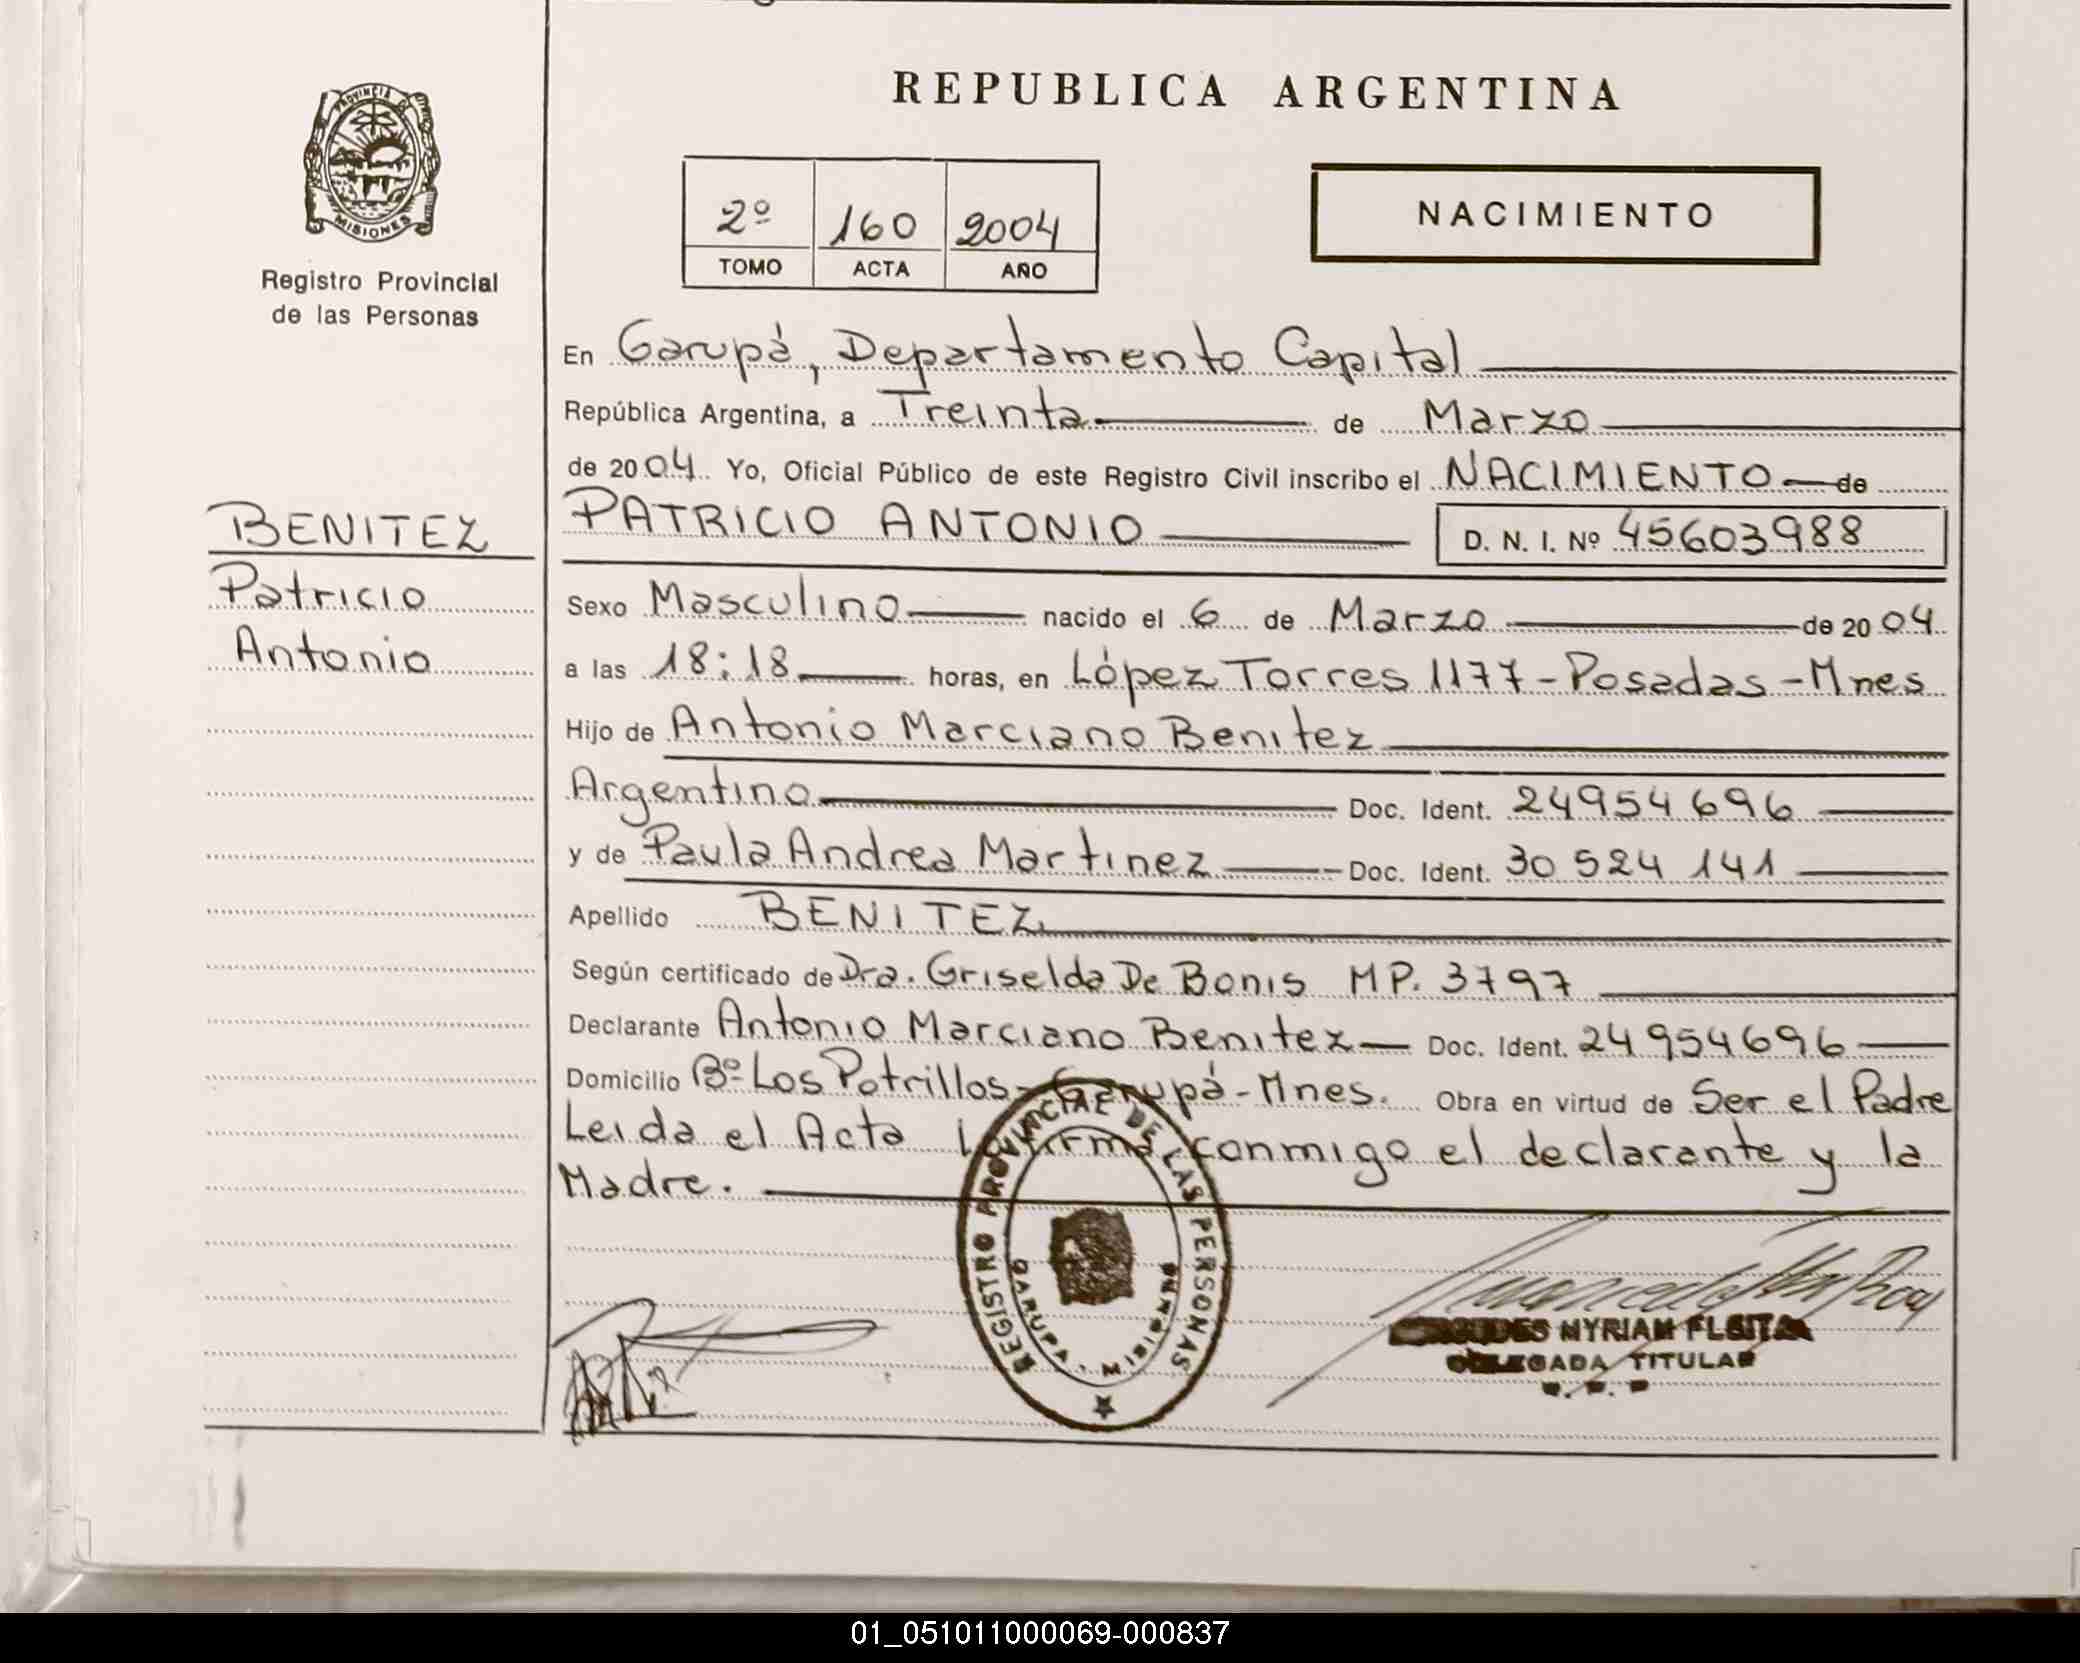 REPUBLICA ARGENTINA
PROVINCIA DE
MISIONES
Registro Provincial
de las Personas
2º 160 2004
TOMO ACTA AÑO
NACIMIENTO
En Garupá, Departamento Capital
República Argentina, a Treinta de Marzo
de 2004 Yo, Oficial Público de este Registro Civil inscribo el NACIMIENTO de
PATRICIO ANTONIO D. N. I. Nº 45603988
BENITEZ
Patricio
Antonio
Sexo Masculino nacido el 6 de Marzo de 2004
a las 18:18 horas, en López Torres 1177-Posadas-Mnes
Hijo de Antonio Marciano Benitez
Argentino Doc. Ident. 24954696
y de Paula Andrea Martinez Doc. Ident. 30524141
Apellido BENITEZ
Según certificado de Dra. Griselda De Bonis MP. 3797
Declarante Antonio Marciano Benitez Doc. Ident. 24954696
Domicilio Bº Los Potrillos-Garupá-Mnes. Obra en virtud de Ser el Padre
Leida el Acta la firma conmigo el declarante y la
Madre.
REGISTRO PROVINCIAL DE LAS PERSONAS
GARUPA - MISIONES
MYRIAM FLEITA
DELEGADA TITULAR
01_051011000069-000837